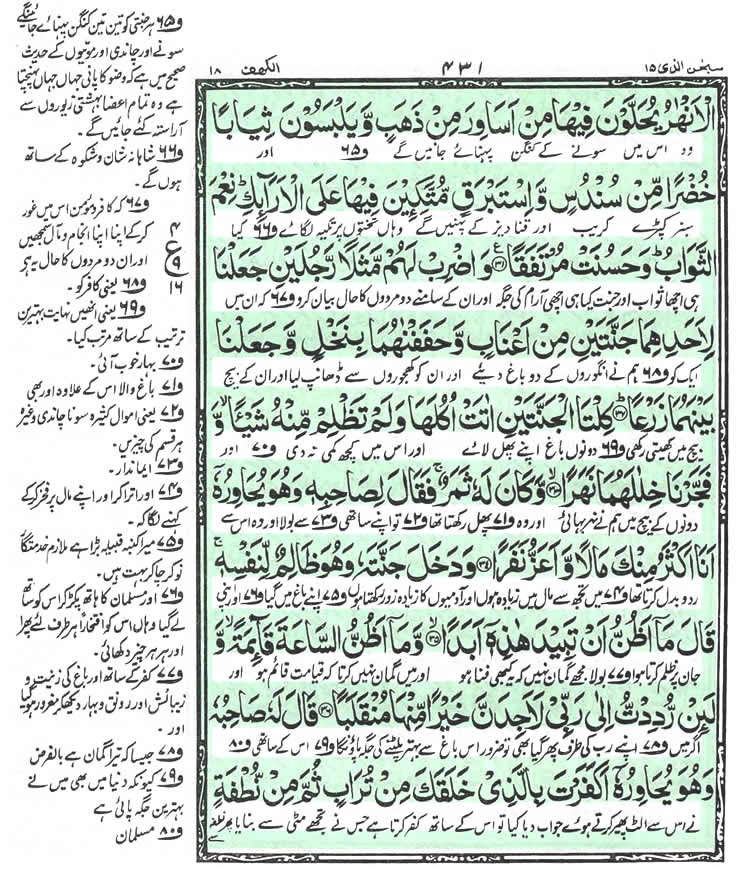 سبحٰن الذی ١٥
٤٣١
الکهف ١٨
الْاَنْهٰرُ يُحَلَّوْنَ فِيْهَا مِنْ اَسَاوِرَ مِنْ ذَهَبٍ وَّيَلْبَسُوْنَ ثِيَابًا
وہ اس میں سونے کے کنگن پہنائے جائیں گے و۶۵ اور
خُضْرًا مِّنْ سُنْدُسٍ وَّاِسْتَبْرَقٍ مُّتَّكِـِٕيْنَ فِيْهَا عَلَى الْاَرَآىِٕكِ ؕ نِعْمَ
سبز کپڑے کریب اور قناویز کے پہنیں گے وہاں تختوں پر تکیہ لگائے و۶۶ کیا
الثَّوَابُ ؕ وَحَسُنَتْ مُرْتَفَقًا ۟ وَاضْرِبْ لَهُمْ مَّثَلًا رَّجُلَيْنِ جَعَلْنَا
ہی اچھا ثواب اور جنت کیا ہی اچھی آرام کی جگہ اور ان کے سامنے دو مردوں کا حال بیان کرو و۶۷ کہ ان میں
لِاَحَدِهِمَا جَنَّتَيْنِ مِنْ اَعْنَابٍ وَّحَفَفْنٰهُمَا بِنَخْلٍ وَّجَعَلْنَا
ایک کو و۶۸ ہم نے انگوروں کے دو باغ دیئے اور ان کو کھجوروں سے ڈھانپ لیا اور ان کے بیچ
بَيْنَهُمَا زَرْعًا ؕ۝۳۲ كِلْتَا الْجَنَّتَيْنِ اٰتَتْ اُكُلَهَا وَلَمْ تَظْلِمْ مِّنْهُ شَيْـًٔا ۙ وَّ
بیچ میں کھیتی رکھی و۶۹ دونوں باغ اپنے پھل لائے اور اس میں کچھ کمی نہ دی و۷۰ اور
فَجَّرْنَا خِلٰلَهُمَا نَهَرًا ۙ۝۳۳ وَّكَانَ لَهٗ ثَمَرٌ ۚ فَقَالَ لِصَاحِبِهٖ وَهُوَ يُحَاوِرُهٗۤ
دونوں کے بیچ میں ہم نے نہر بہائی اور وہ و۷۱ پھل رکھتا تھا و۷۲ تو اپنے ساتھی و۷۳ سے بولا اور وہ اس سے
اَنَا اَكْثَرُ مِنْكَ مَالًا وَّاَعَزُّ نَفَرًا ۝۳۴ وَدَخَلَ جَنَّتَهٗ وَهُوَ ظَالِمٌ لِّنَفْسِهٖ ۚ
ردوبدل کرتا تھا و۷۴ میں تجھ سے مال میں زیادہ ہوں اور آدمیوں کا زیادہ زور رکھتا ہوں و۷۵ اپنے باغ میں گیا و۷۶ اور اپنی
قَالَ مَاۤ اَظُنُّ اَنْ تَبِيْدَ هٰذِهٖۤ اَبَدًا ۙ۝۳۵ وَّمَاۤ اَظُنُّ السَّاعَةَ قَآىِٕمَةً ۙ وَّ
جان پر ظلم کرتا ہوا و۷۷ بولا مجھے گمان نہیں کہ یہ کبھی فنا ہو اور میں گمان نہیں کرتا کہ قیامت قائم ہو اور
لَىِٕنْ رُّدِدْتُّ اِلٰى رَبِّيْ لَاَجِدَنَّ خَيْرًا مِّنْهَا مُنْقَلَبًا ۝۳۶ قَالَ لَهٗ صَاحِبُهٗ
اگر میں و۷۸ اپنے رب کی طرف پھر گیا بھی تو ضرور اس باغ سے بہتر پلٹنے کی جگہ پاؤنگا و۷۹ اس کے ساتھی و۸۰
وَهُوَ يُحَاوِرُهٗۤ اَكَفَرْتَ بِالَّذِيْ خَلَقَكَ مِنْ تُرَابٍ ثُمَّ مِنْ نُّطْفَةٍ
نے اس سے الٹ پھیر کرتے ہوئے جواب دیا کیا تو اس کے ساتھ کفر کرتا ہے جس نے تجھے مٹی سے بنایا پھر نطفہ سے
و۶۵ ہر جنتی کو تین تین کنگن پہنائے جائینگے
سونے اور چاندی اور موتیوں کے حدیث
صحیح میں ہے کہ وضو کا پانی جہاں جہاں پہنچتا
ہے وہ تمام اعضا بہشتی زیوروں سے
آراستہ کئے جائیں گے۔
و۶۶ شاہانہ شان و شکوہ کے ساتھ
ہوں گے۔
و۶۷ کہ کافر و مومن اس میں غور
کرکے اپنا اپنا انجام و مآل سمجھیں
اور ان دو مردوں کا حال یہ ہے
و۶۸ یعنی کافر کو۔
۴
ع
۹
۱۶
و۶۹ یعنی انھیں نہایت بہترین
ترتیب کے ساتھ مرتب کیا۔
و۷۰ بہار خوب آئی۔
و۷۱ باغ والا اس کے علاوہ اور بھی
و۷۲ یعنی اموال کثیرہ سونا چاندی وغیرہ
ہر قسم کی چیزیں۔
و۷۳ ایماندار۔
و۷۴ اور اترا کر اور اپنے مال پر فخر کرکے
کہنے لگا کہ۔
و۷۵ میرا کنبہ قبیلہ بڑا ہے ملازم خدمتگار
نوکر چاکر بہت ہیں۔
و۷۶ اور مسلمان کا ہاتھ پکڑ کر اس کو ساتھ
لے گیا وہاں اس کو افتخاراً ہر طرف لئے پھرا
اور ہر ہر چیز دکھائی۔
و۷۷ کفر کے ساتھ اور باغ کی زینت و
زیبائش اور رونق و بہار دیکھ کر مغرور ہو گیا
اور۔
و۷۸ جیسا کہ تیرا گمان ہے بالفرض
و۷۹ کیونکہ دنیا میں بھی میں نے
بہترین جگہ پائی ہے
و۸۰ مسلمان